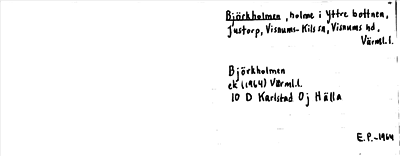 Björkholmen, holme i Yttre bottnen,
Justorp, Visnums-Kils sn, Visnums hd,
Värml.l.
Björkholmen
ek (1964) Värml.l.
10 D Karlstad 0j Hälla
E.P.-1964